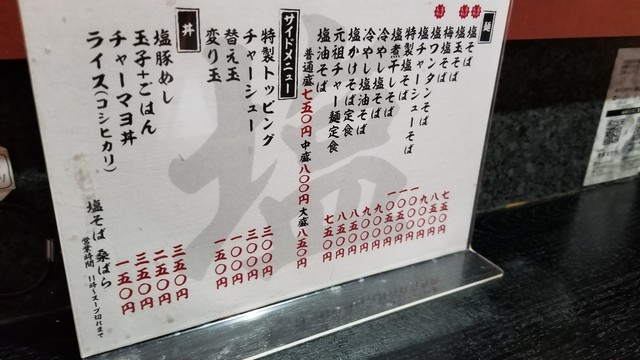 麺
塩そば 七五〇円
塩玉そば 八五〇円
梅塩そば
塩ワンタンそば
塩チャーシューそば
特製塩そば
塩煮干しそば
冷やし塩そば
冷やし塩油そば
塩かけそば定食
元祖チャー麺定食
塩油そば
普通盛七五〇円 中盛八〇〇円 大盛八五〇円
サイドメニュー
特製トッピング 三〇〇円
チャーシュー 三〇〇円
替え玉 一〇〇円
変り玉 一五〇円
丼
塩豚めし 三五〇円
玉子+ごはん 二五〇円
チャーマヨ丼 三五〇円
ライス(コシヒカリ) 一五〇円
塩そば 桑ばら
営業時間 11時~スープ切れまで
塩